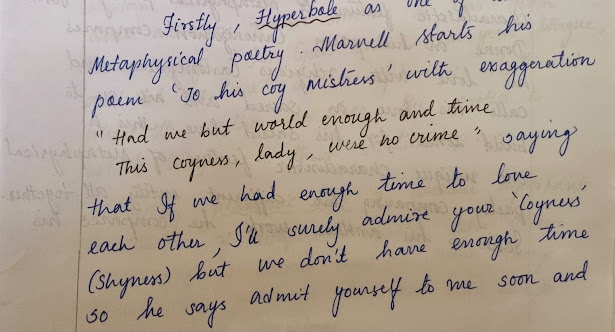 Firstly, Hyperbole as one of
Metaphysical poetry. Marvell starts his
poem 'To his coy mistress' with exaggeration
"Had we but world enough and time
This coyness, lady, were no crime" saying
that If we had enough time to love
each other, I'll surely admire your 'Coyness,
(Shyness) but we don't have enough time
so he says admit yourself to me soon and